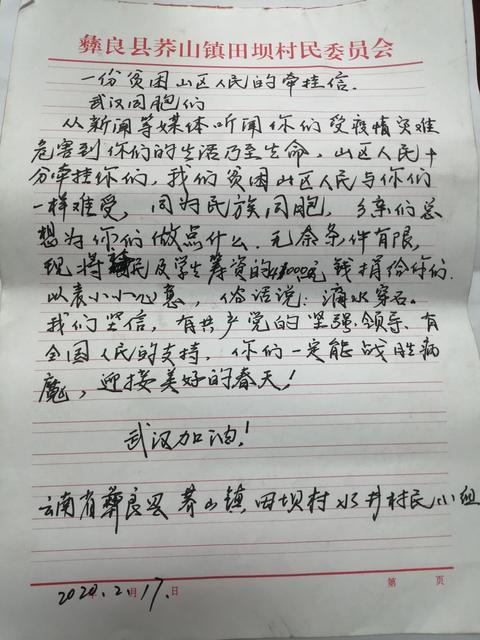 彝良县荞山镇田坝村民委员会
一份贫困山区人民的牵挂信.
武汉同胞们
从新闻等媒体听闻你们受疫情灾难
危害到你们的生活乃至生命，山区人民十
分牵挂你们，我们贫困山区人民与你们
一样难受，同为民族同胞，乡亲们总
想为你们做点什么.无奈条件有限，
现将 民及学生筹资的 元钱捐给你们.
以表小小心意，俗话说：滴水穿石。
我们坚信，有共产党的坚强领导、有
全国人民的支持，你们一定能战胜病
魔，迎接美好的春天！
武汉加油！
云南省彝良县荞山镇田坝村水井村民小组
2020年2月17日
第 页